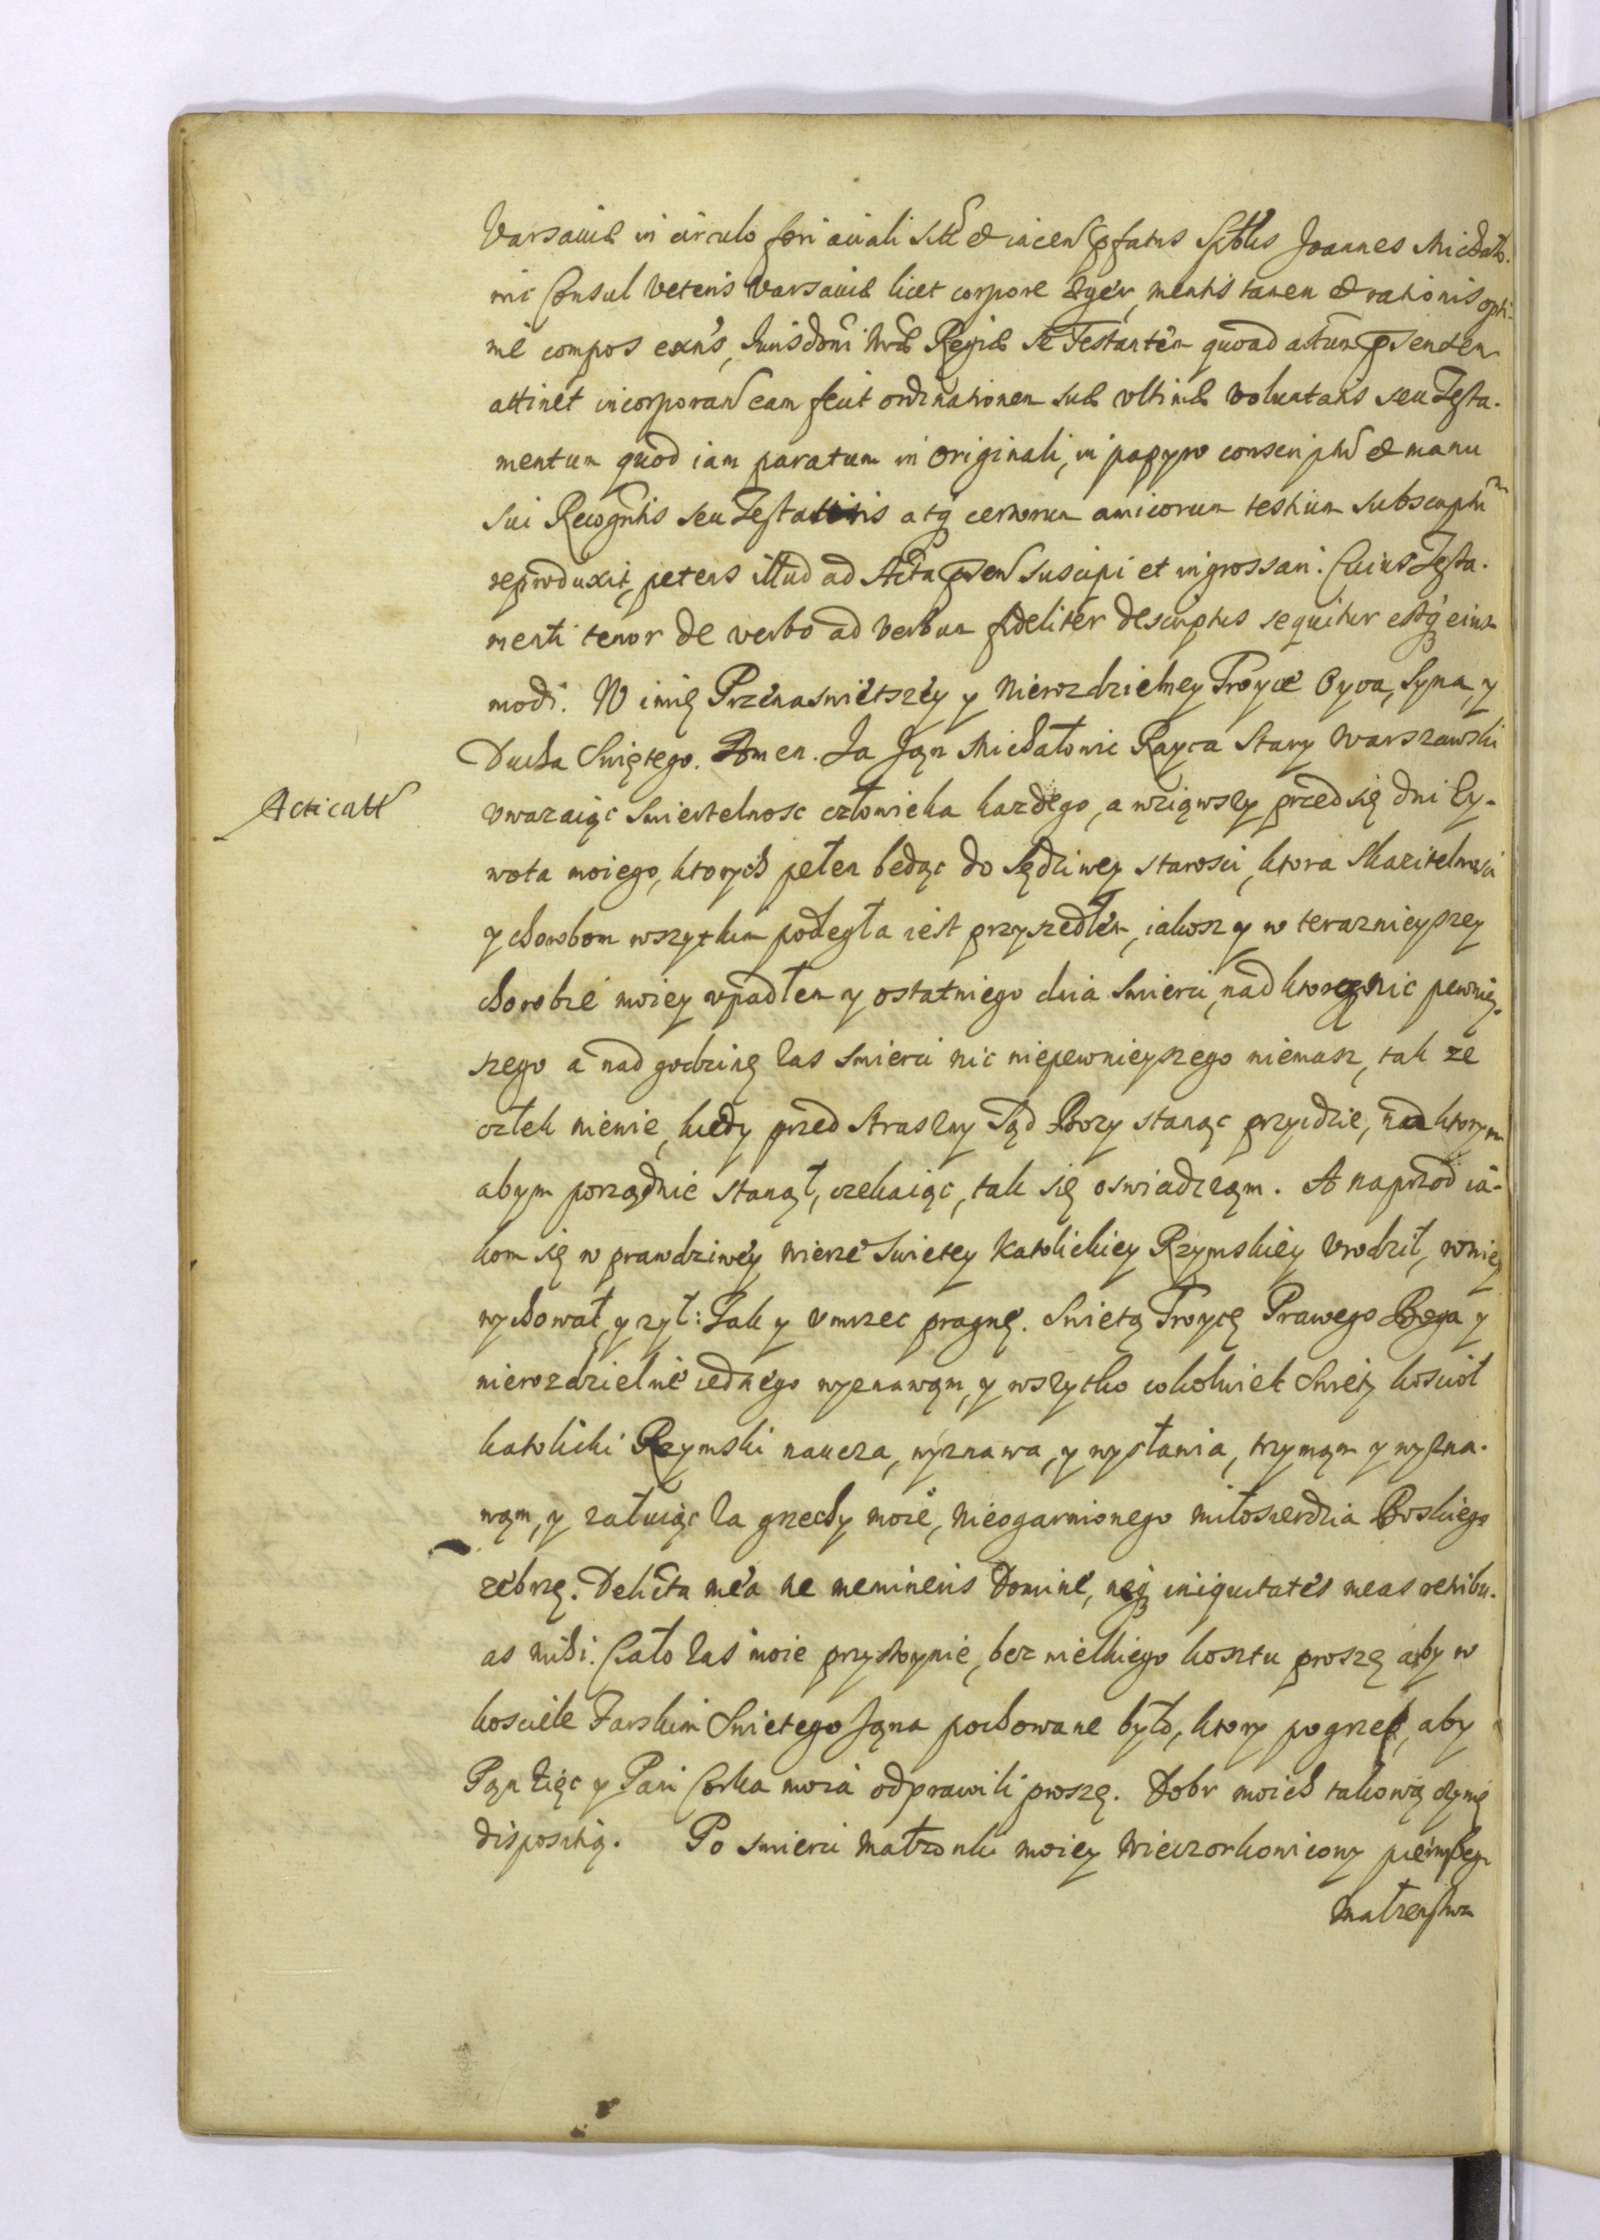 Varsaviæ in circulo fori aviali sitt et iacen pfatus Sptblis Joannes Michało-
wic Consul veteris Varsaviæ licet corpore æger, mentis tamen et rationis opti-
me compos exns, Jurisdoni Mtis Regiæ se Testantem quoad actum psentem
attinet incorporan eam fecit ordinationem suæ ultimæ voluntatis seu Testa-
mentum quod iam paratum in originali, in papyro conscriptu et manu
sui Recognitis seu Testatoris atq certorum amicorum testium subscriptu
reproduxit, petens illud ad Acta psen suscipi et ingrossari. Cuius Testa-
menti tenor de verbo ad verbum fideliter descriptus sequitur estq eius
modi. W imię Przenaswietszey y Nierozdzielney Troyce Oyca, Syna, y
Ducha Swiętego. Amen. Ja Ján Michałowic Rayca Stary Warszawski
Acticatt
uwazaiąc smiertelnosc człowieka kazdego, a wziąwszy przed się dni zy-
wota moiego, ktorych pełen będąc do sędziwey starosci, ktora skazitelnosci
y chorobom wszytkim podległa iest przyszedłem, iakosz y w teraznieyszey
chorobie moiey upadłem y ostatniego dnia smierci, nad ktorą nic pewniey-
szego a nad godzinę zas smierci nic niepewnieyszego niemasz, tak ze
człek niewie, kiedy przed straszny Sąd Bozy stanąc przyidzie, na ktorym
abym porządnie stanął, czekaiąc, tak się oswiadczam. A naprzod ia-
kom się w prawdziwey wierze Swietey Katolickiey Rzymskiey urodził, w niey
wychował, y zył: Tak y umrzec pragnę. Swiętą Troycę Prawego Boga y
nierozdzielnie iednego wyznawam, y wszytko cokolwiek Swięty kosciół
katolicki Rzymski naucza, wyznawa, y wysławia, trzymam y wyzna-
wam, y załuiąc za grzechy moie, nieogarnionego miłosierdzia Boskiego
zebrzę. Delicta mea ne memineris Domine, neq iniquitates meas retribu-
as mihi. Ciało zas moie przystoynie, bez wielkiego kosztu proszę aby w
kosciele Farskim Swietego Jana pochowane było, ktory pogrzeb, aby
Pan Zięc y Pani Corka moia odprawili proszę. Dobr moich takową czynię
dispositią. Po smierci Małzonki moiey Wieczorkowiczony pierwszego
Małzenstwa